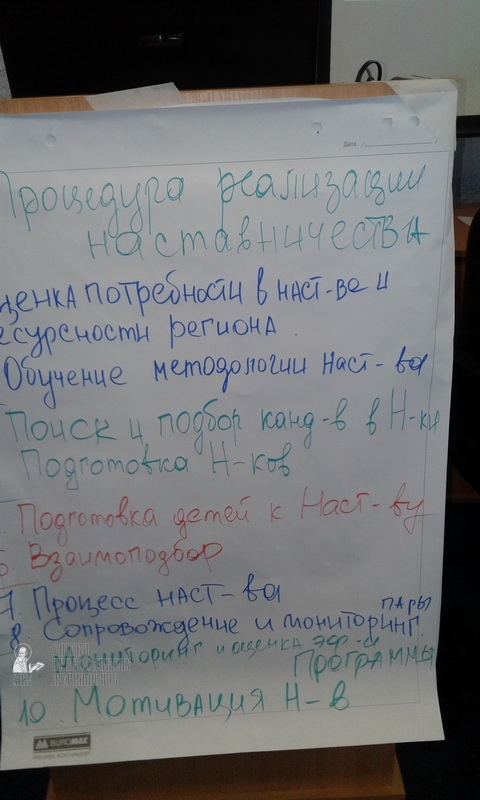 Дата
Процедура реализации
наставничества
ценка потребности в наст-ве и
есурсности региона.
Обучение методологии наст-ва
Поиск и подбор канд-в в Н-ки
Подготовка Н-ков
Подготовка детей к Наст-ву
6. Взаимоподбор
7. Процесс наст-ва
8. Сопровождение и мониторинг пары
Мониторинг и оценка эф-и
Программы
10. Мотивация Н-в
BUROMAX